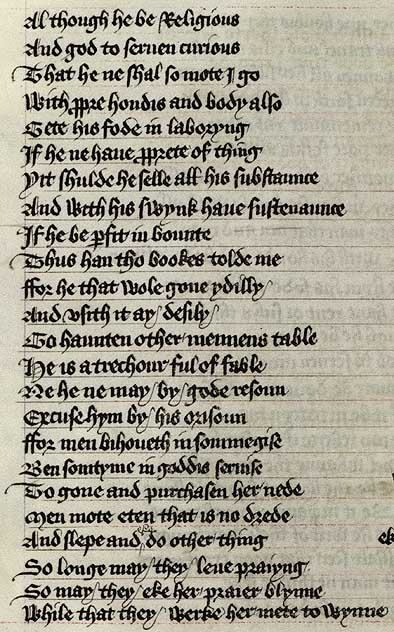 Al though he be Religious
And god to seruen curious
That he ne shal so mote I go
With ꝓpre hondis and body also
Gete his fode in laboryng
If he ne haue ꝓprete of thing
Yit shulde he selle all his substaunce
And with his swynk haue sustenaunce
If he be ꝑfit in bounte
Thus han tho bookes tolde me
ffor he that wole gone ydilly/
And vsith it ay/ desily/
To haunten other mennens table
He is a trechour ful of fable
Ne he ne may/ by/ gode resoun
Excuse hym by/ his orisoun
ffor men bihoueth in sommegise
Ben somtyme in goddis seruise
To gone and purchasen her nede
Men mote eten that is no drede
And slepe and eke do other thing
So longe may/ they/ leue praiyng
So may/ they/ eke her praier blynne
While that they/ werke her mete to wynne